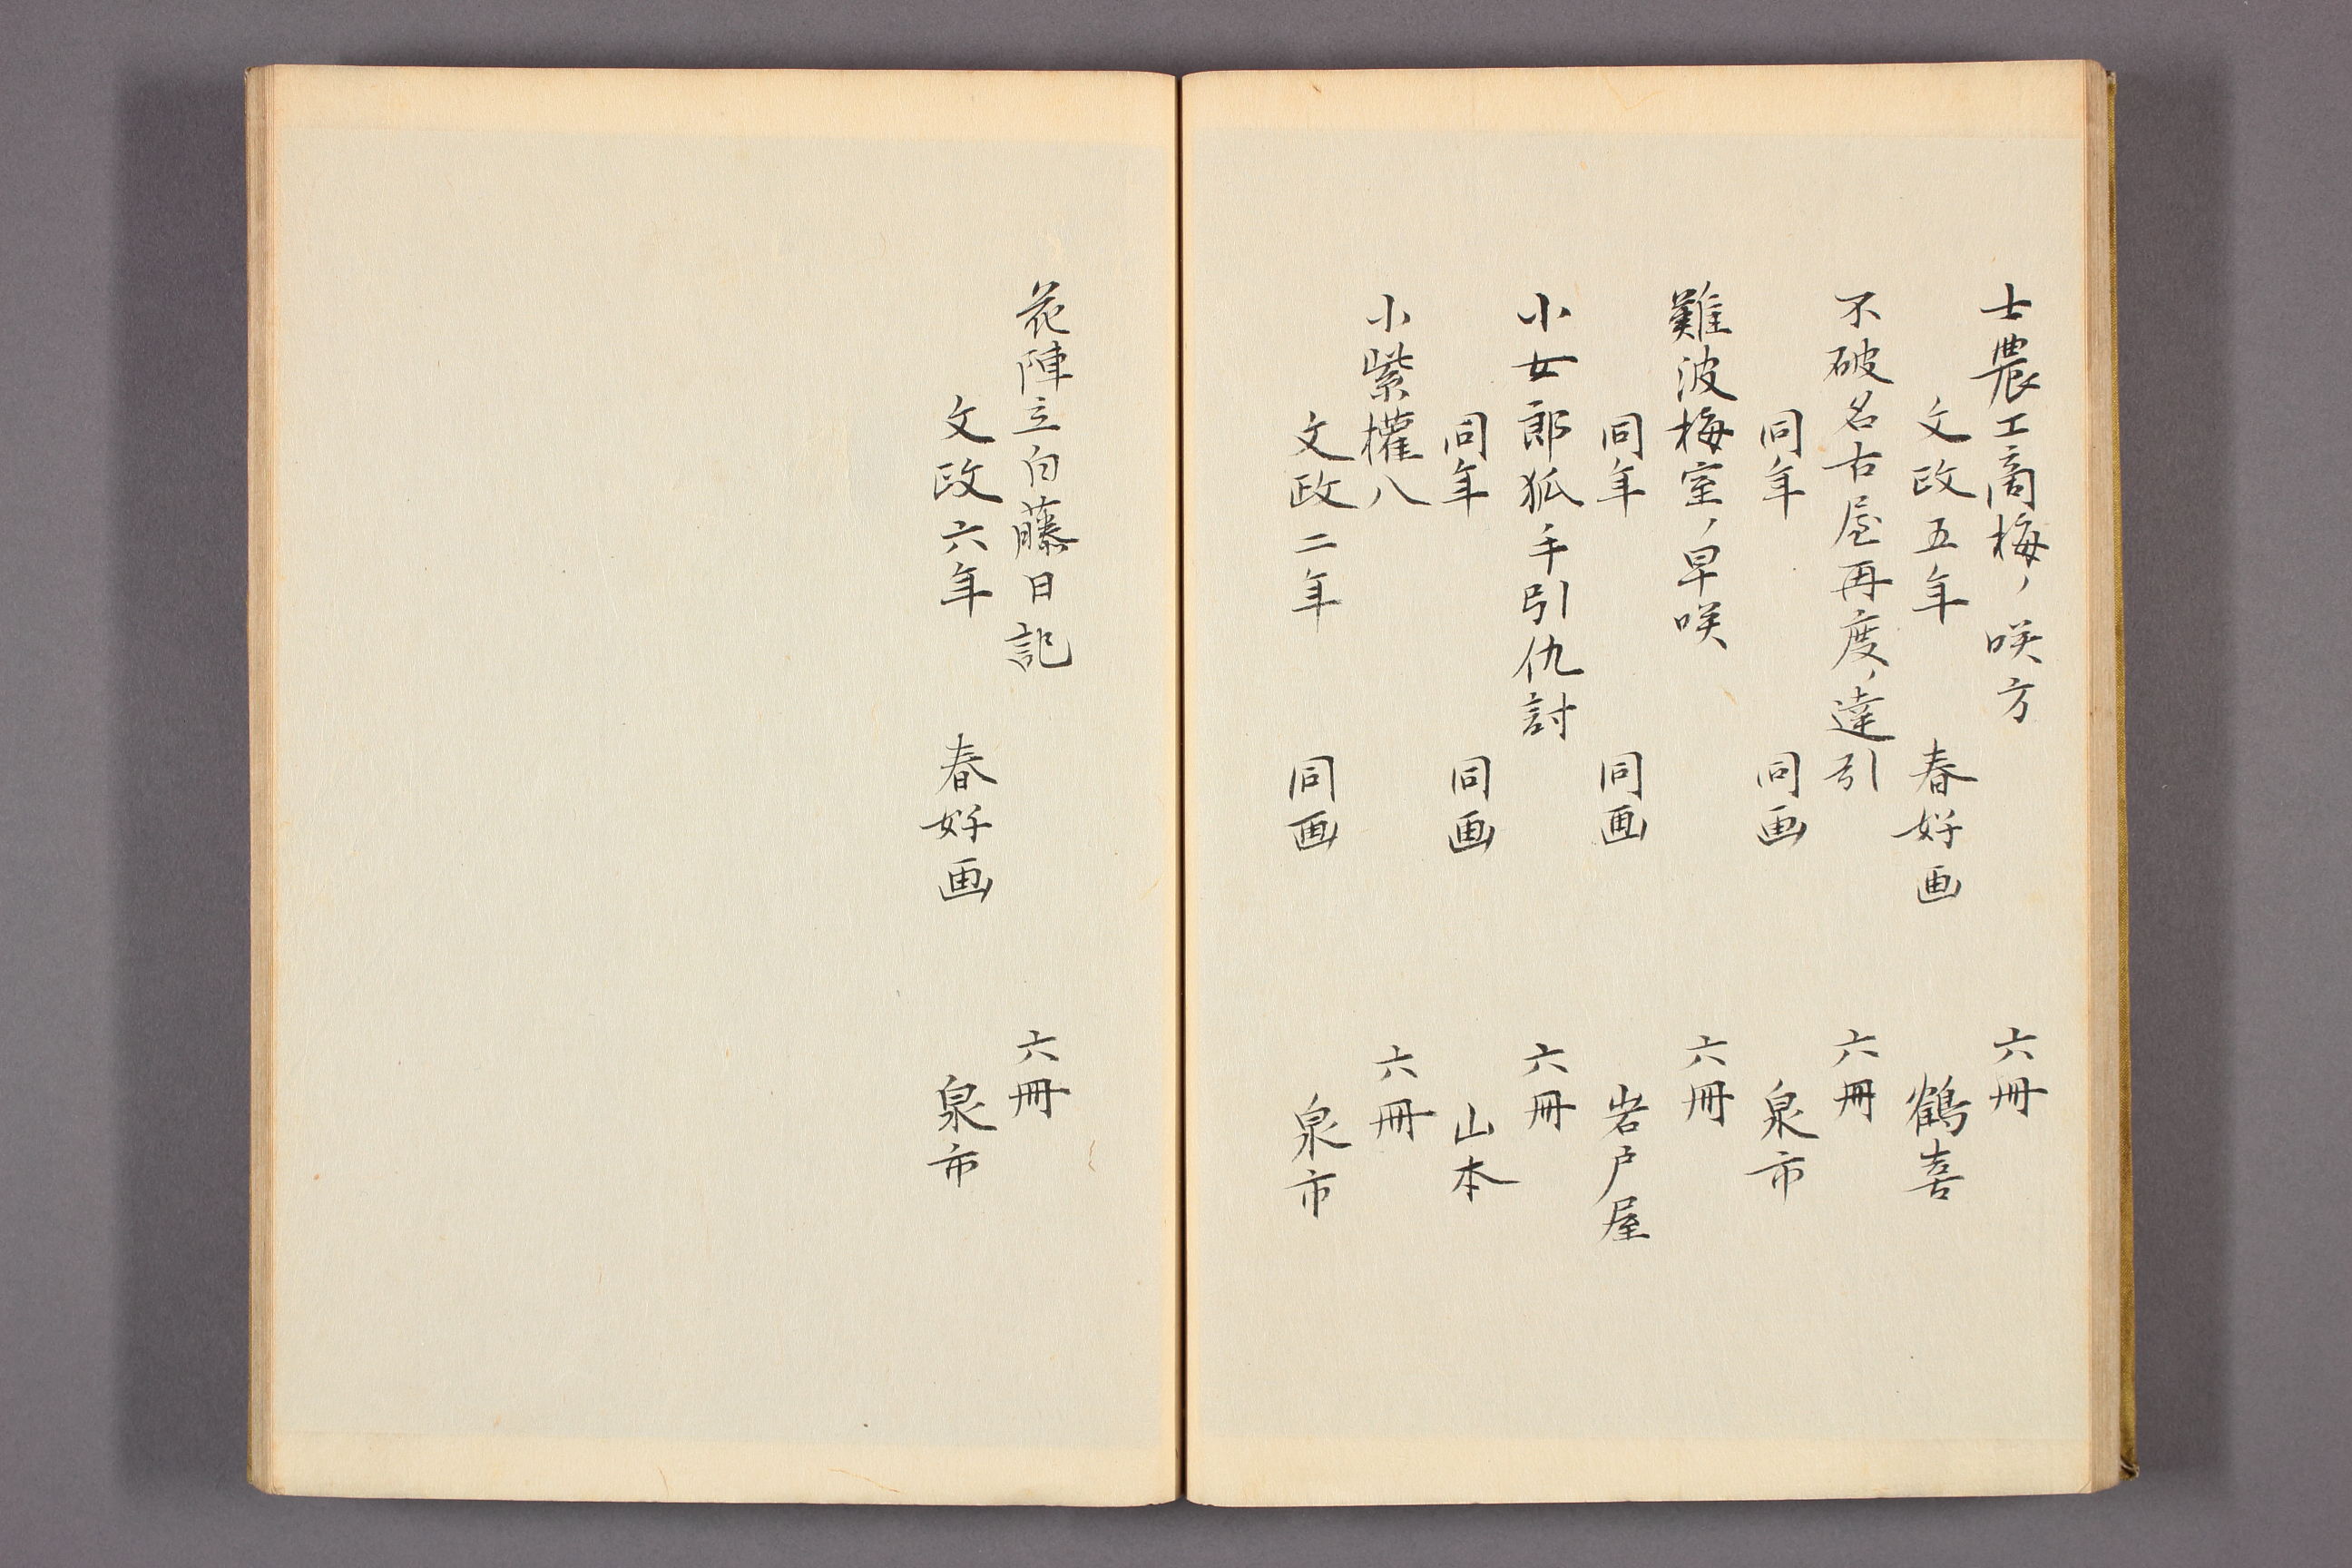 士農工商梅ノ咲方 六冊
文政五年 春好画 鶴喜
不破名古屋再度ノ達引 六冊
同年 同画 泉市
難波梅室ノ早咲 六冊
同年 同画 岩戸屋
小女郎狐手引仇討 六冊
同年 同画 山本
小紫權八 六冊
文政二年 同画 泉市
花陣立白藤日記 六冊
文政六年 春好画 泉市